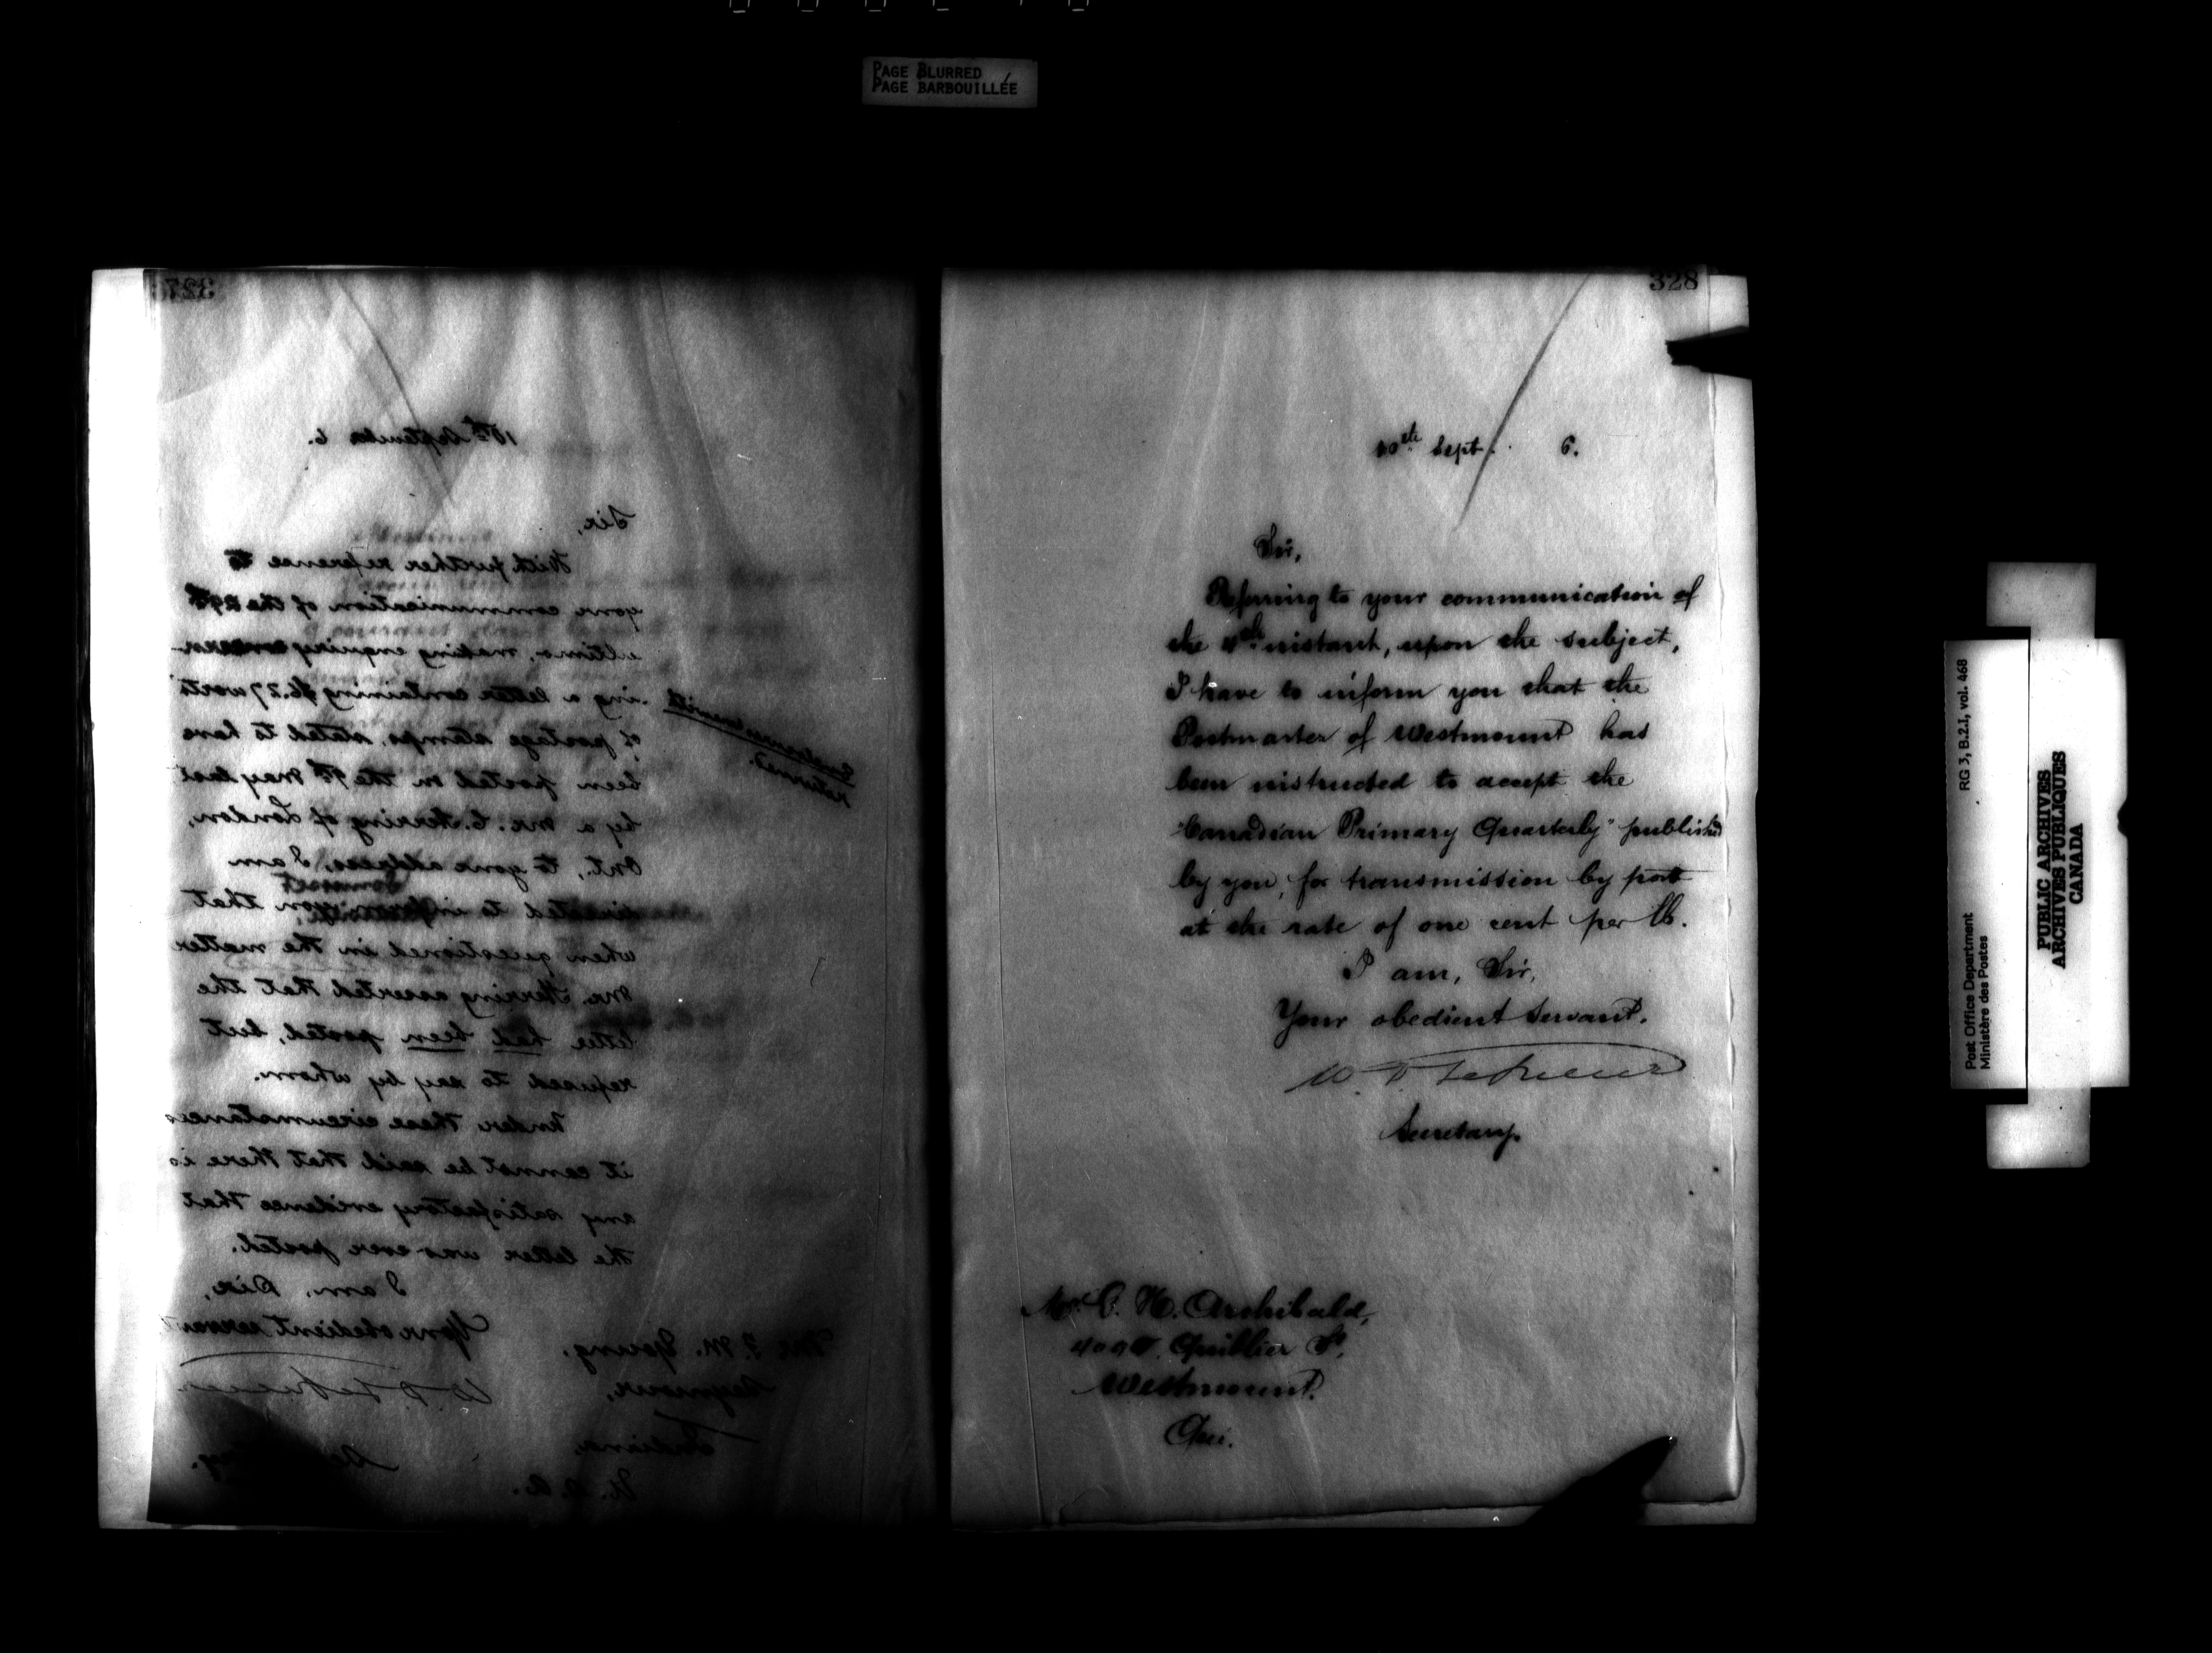 PAGE BLURRED
PAGE BARBOUILLÉE
327
10th September 6.
Sir,
With further reference to
your communication of the 29th
ultimo, making enquiry concern-
ing a letter containing $6.27 worth
of postage stamps, stated to have
been posted on the 9th May last
by a Mr. C. Herring of London,
Ont., to your address, I am
directed to inform you that
when questioned in the matter
Mr. Herring asserted that the
letter had been posted, but
refused to say by whom.
Under these circumstances
it cannot be said that there is
any satisfactory evidence that
the letter was ever posted.
I am, Sir,
Your obedient servant
Enclosures herewith
returned.
Mr. F. M. Young,
Seymour,
Indiana,
U.S.A.
328
10th Sept. 6.
Sir,
Referring to your communication of
the 4th instant, upon the subject,
I have to inform you that the
Postmaster of Westmount has
been instructed to accept the
"Canadian Primary Quarterly" published
by you, for transmission by post
at the rate of one cent per lb.
I am, Sir,
Your obedient Servant.
Secretary.
Mr. C. H. Archibald,
Quiblier St,
Westmount.
Que.
Post Office Department RG 3, B.2.I, vol. 468
Ministère des Postes
PUBLIC ARCHIVES
ARCHIVES PUBLIQUES
CANADA